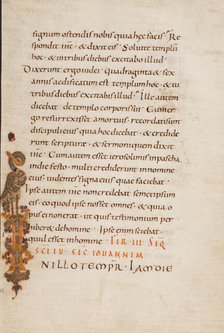 signum ostendis nobis quia hęc facis. Res
pondit ihc & dixit eis. Soluite templū
hoc & intribus diebus excitabo illud.
Dixerunt ergo iudei. quadraginta & sex
annis aedificatum est templum hoc & tu
tribus diebus excitabis illud. Ille autem
dicebat de templo corporis sui. Cum er
go resurrexisset amortuis recordati sunt
discipuli eius quia hoc dicebat & credide
runt scripturę & sermoni quem dixit
ihc. Cum autem esset ierosolimis inpascha
indie festo. multi crediderunt innomine
eius uidentes signa eius quae faciebat
Ipse autem ihc non credebat semetipsum eis
eo quod ipse nosset omnes. & quia o
pus ei non erat. ut quis testimonium per
hiberet dehomine. Ipse enim sciebat
quid esset inhomine. FER. III. SEQ
SCI EU. SEC IOHANNEM
IN ILLO TEMPR. IAM DIE